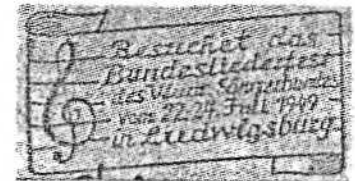 Besuchet das
Bundesliederfest
des Württ. Sängerbundes
vom 22.-24. Juli 1949
in Ludwigsburg